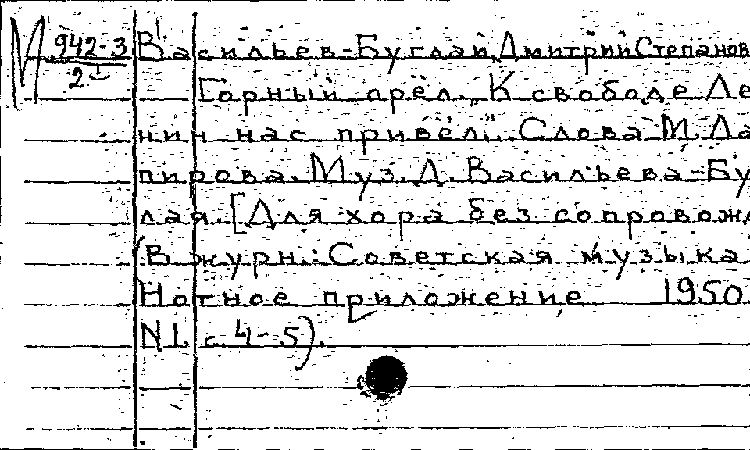 М 942-3/2 Васильев-Буглай, Дмитрий Степанов
Горный орёл. „К свободе Ле
нин нас привёл". Слова М. Ла
пирова. Муз. Д. Васильева-Бу
лая. [Для хора без сопровожд
(В журн.: Советская музыка
Нотное приложение 1950
N 1. с. 4-5).